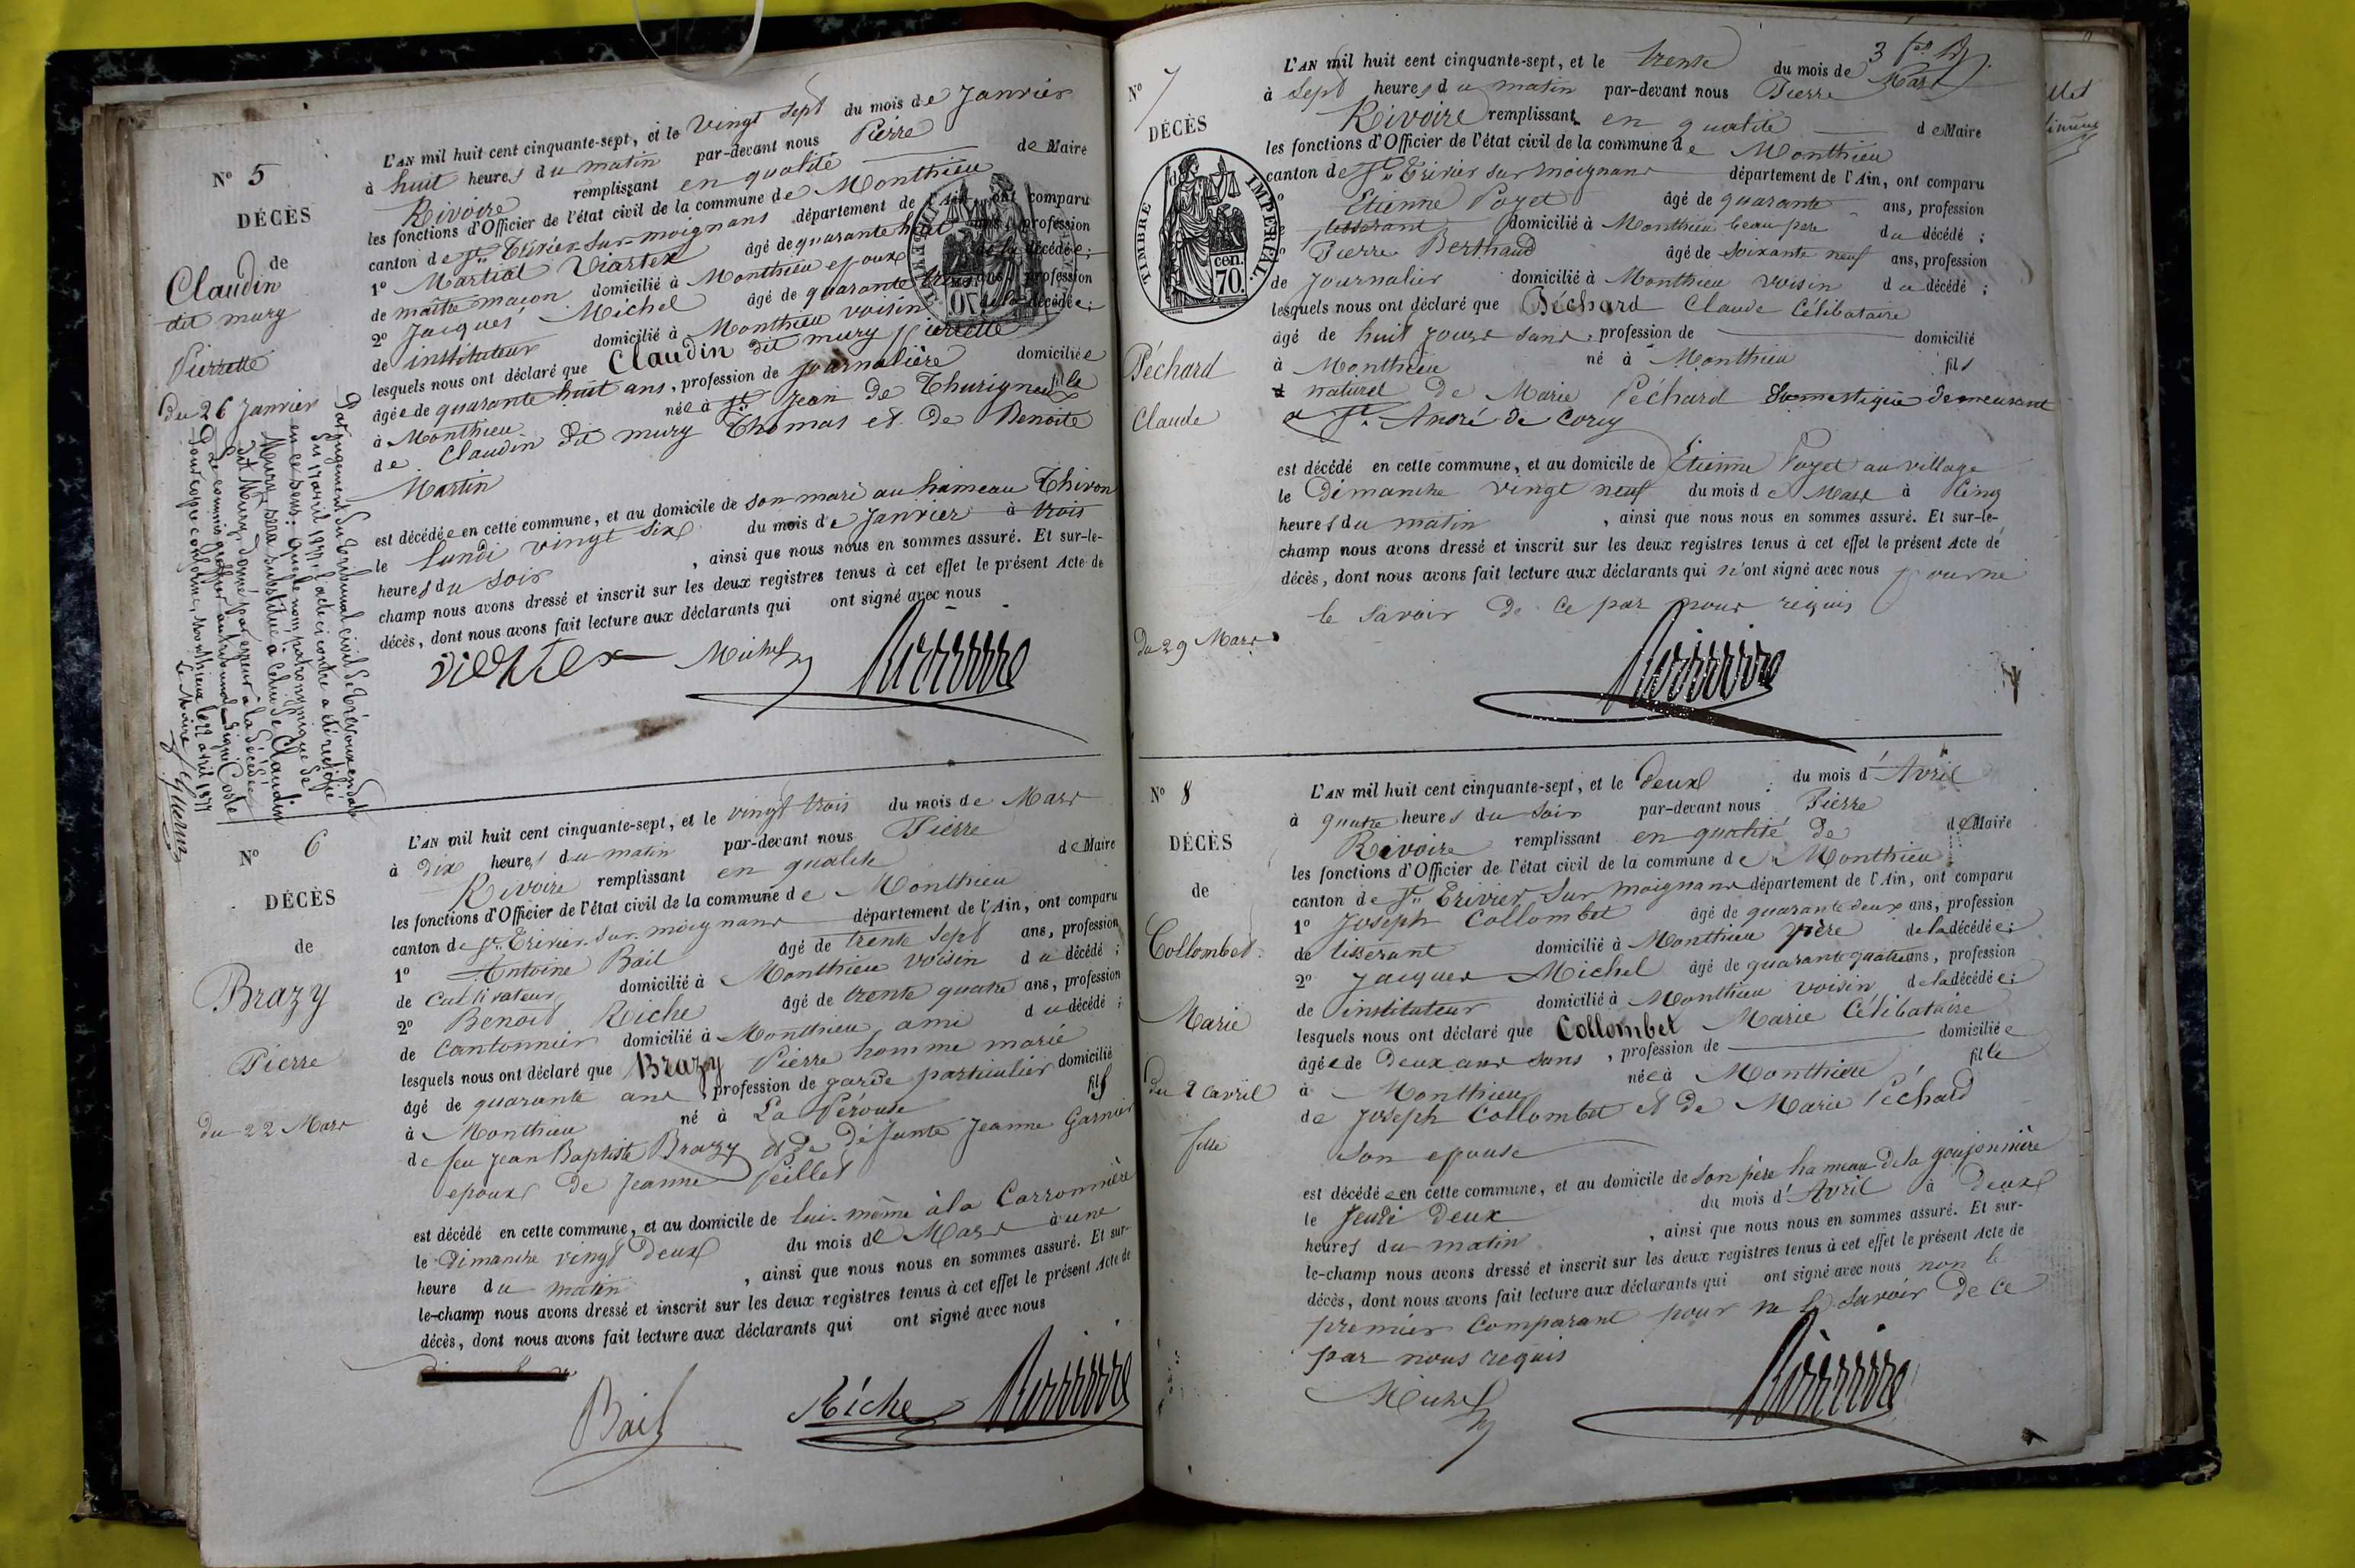 N° 5
DÉCÈS
de
Claudin
dit mury
Pierrette
du 26 Janvier
L'AN mil huit cent cinquante-sept, et le vingt sept du mois de Janvier
à huit heures du matin par-devant nous Pierre
Rivoire remplissant en qualité de Maire
les fonctions d'Officier de l'état civil de la commune de Monthieu
canton de St Trivier sur moignans département de l'Ain, ont comparu
1° Martial Viartex âgé de quarante huit ans, profession
de maître maçon domicilié à Monthieu epoux de la décédée;
2° Jacques Michel âgé de quarante trois ans, profession
de instituteur domicilié à Monthieu voisin de la décédée;
lesquels nous ont déclaré que Claudin dit mury pierrette
âgée de quarante huit ans, profession de journalière domiciliée
à Monthieu née à St Jean de Thurigneux fille
de Claudin dit mury Thomas et de Benoite
Martin
est décédée en cette commune, et au domicile de son mari au hameau Thivon
le lundi vingt six du mois de Janvier à trois
heures du soir, ainsi que nous nous en sommes assuré. Et sur-le-
champ nous avons dressé et inscrit sur les deux registres tenus à cet effet le présent Acte de
décès, dont nous avons fait lecture aux déclarants qui ont signé avec nous
viertex Michel Rivoire
Par jugement du tribunal civil de Trévoux en date
du 17 avril 1877, l'acte ci contre a été rectifié
en ce sens: que le nom patronymique de
Mury sera substitué à celui de Claudin
dit Mury, donné par erreur à la décédée
Le commis greffier au tribunal signé Coste
Pour copie conforme, Monthieux le 22 avril 1877
Le Maire
N° 6
DÉCÈS
de
Brazy
Pierre
du 22 Mars
L'AN mil huit cent cinquante-sept, et le vingt trois du mois de Mars
à dix heures du matin par-devant nous Pierre
Rivoire remplissant en qualité de Maire
les fonctions d'Officier de l'état civil de la commune de Monthieu
canton de St Trivier sur moignans département de l'Ain, ont comparu
1° Antoine Bail âgé de trente sept ans, profession
de cultivateur domicilié à Monthieu voisin du décédé;
2° Benoit Riche âgé de trente quatre ans, profession
de Cantonnier domicilié à Monthieu, ami du décédé;
lesquels nous ont déclaré que Brazy Pierre homme marié
âgé de quarante ans, profession de garde particulier domicilié
à Monthieu né à La Pérouse fils
de feu Jean Baptiste Brazy et de défunte Jeanne Garnier
epoux de Jeanne Peillet
est décédé en cette commune, et au domicile de lui-même à la Carronnière
le dimanche vingt deux du mois de Mars à une
heure du matin, ainsi que nous nous en sommes assuré. Et sur-
le-champ nous avons dressé et inscrit sur les deux registres tenus à cet effet le présent Acte de
décès, dont nous avons fait lecture aux déclarants qui ont signé avec nous
Bail Riche Rivoire
3 fes
N° 7
DÉCÈS
TIMBRE IMPÉRIAL
70 cen.
Péchard
Claude
du 29 Mars
L'AN mil huit cent cinquante-sept, et le trente du mois de Mars
à Sept heures du matin par-devant nous Pierre
Rivoire remplissant en qualité de Maire
les fonctions d'Officier de l'état civil de la commune de Monthieu
canton de St Trivier sur moignans département de l'Ain, ont comparu
Etienne Poyet âgé de quarante ans, profession
tisserant domicilié à Monthieu beau pere du décédé;
Pierre Berthaud âgé de soixante neuf ans, profession
de Journalier domicilié à Monthieu voisin du décédé;
lesquels nous ont déclaré que Péchard Claude Célibataire
âgé de huit jours sans, profession de domicilié
à Monthieu né à Monthieu fils
naturel de Marie Péchard domestique demeurant
a St André de Corcy
est décédé en cette commune, et au domicile de Etienne Poyet au village
le Dimanche vingt neuf du mois de Mars à Cinq
heures du matin, ainsi que nous nous en sommes assuré. Et sur-le-
champ nous avons dressé et inscrit sur les deux registres tenus à cet effet le présent Acte de
décès, dont nous avons fait lecture aux déclarants qui n'ont signé avec nous pour ne
le savoir de ce par nous requis
Rivoire
N° 8
DÉCÈS
de
Collombet
Marie
du 2 avril
fille
L'AN mil huit cent cinquante-sept, et le deux du mois d'Avril
à quatre heures du soir par-devant nous Pierre
Rivoire remplissant en qualité de de Maire
les fonctions d'Officier de l'état civil de la commune de Monthieu
canton de St Trivier Sur moignans département de l'Ain, ont comparu
1° Joseph Collombet âgé de quarante deux ans, profession
de tisserant domicilié à Monthieu père de la décédée;
2° Jacques Michel âgé de quarante quatre ans, profession
de instituteur domicilié à Monthieu voisin de la décédée;
lesquels nous ont déclaré que Collombet Marie Célibataire
âgée de deux ans sans, profession de domiciliée
à Monthieu née à Monthieu fille
de Joseph Collombet et de Marie Péchard
son epouse
est décédée en cette commune, et au domicile de son père hameau de la goujonnière
le Jeudi deux du mois d'Avril à deux
heures du matin, ainsi que nous nous en sommes assuré. Et sur-
le-champ nous avons dressé et inscrit sur les deux registres tenus à cet effet le présent Acte de
décès, dont nous avons fait lecture aux déclarants qui ont signé avec nous non le
premier Comparant pour ne le savoir de ce
par nous requis
Michel Rivoire